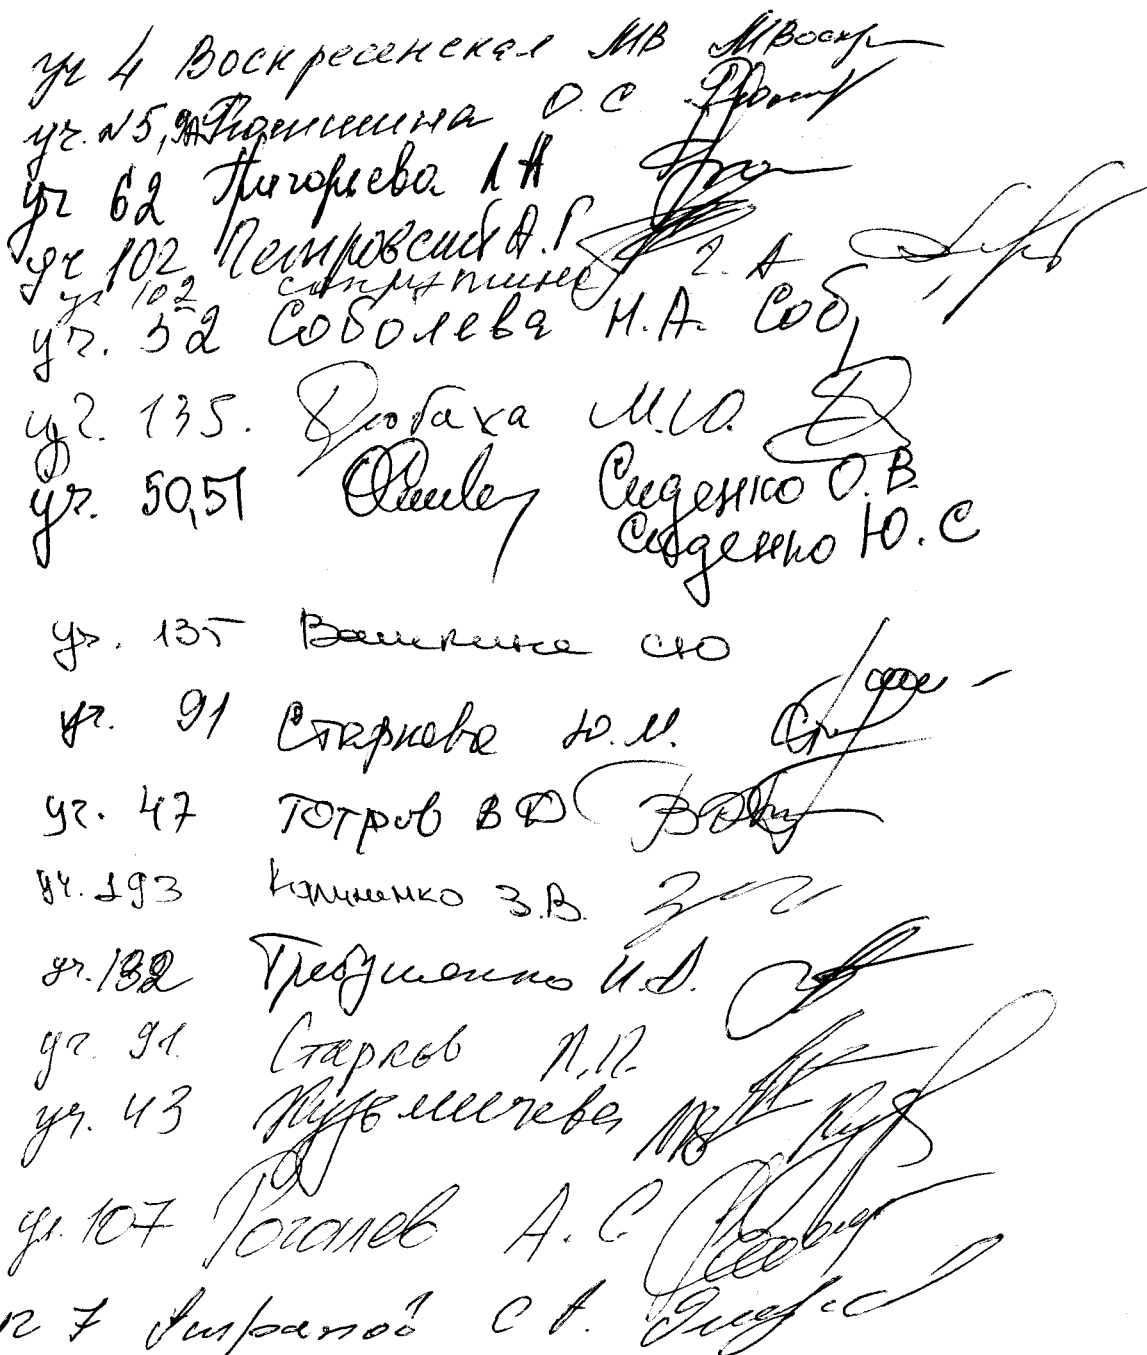 уч 4 Воскресенская МВ МВоскр
уч. №5, О.С
уч 62 Григорьева Л Н
уч 102 Петровский А.Г
уч 102 Г. А
уч. 52 Соболева Н.А. Соб
уч. 135. Дюбаха М.Ю.
уч. 50,51 Сиденко О.В.
Сиденко Ю.С
уч. 135 Вашкина СЮ
уч. 91 Старкова Ю.М.
уч. 47 Тотров В Д
уч. 193 Калиненко З.В.
уч. 132 Требушенко И.А.
уч. 91. Старков П.П.
уч. 43 Кузьмичева МВ
уч. 107 Рогалев А.С.
7 С А.